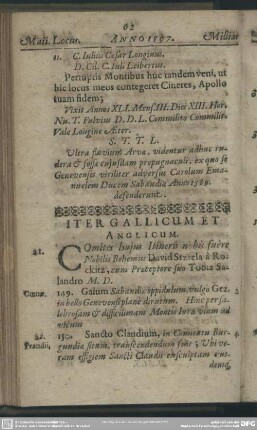 62
Matt. Locus. ANNO 1597. Milliar
11. C. Iulius Cæsar Longinus.
D. Cil. C. Iuli Leibertus.
Perruptis Montibus huc tandem veni, ut
hic locus meos contegeret Cineres, Apollo
tuam fidem;
Vixit Annos XLI. Mens. III. Dies XIII. Hor.
Nu. T. Fulvius D. D. L. Commilito Commilit.
Vale Longine Æter.
S. T. T. L.
Ultra fluvium Arva, videntur adhuc ru-
dera & fossa cujusdam propugnaculi, ex quo se
Genevenses viriliter adversus Carolum Ema-
nuelem Ducem Sabaudiæ Anno 1589.
defenderunt.
ITER GALLICUM ET
ANGLICUM.
21. Comites hujus Itineris nobis fuere
Nobilis Bohemus David Strzela à Ro-
ckitz, cum Præceptore suo Tobia Sa-
landro M. D.
Cœna. 149. Gaium Sabaudiæ oppidulum, vulgò Gez,
in bello Genevensi planè dirutum. Hinc per sa-
lebrosam & difficilimam Montis Iura viam ad
vicum
22. 150. Sancto Claudium, in Comitatu Bur-
Prandii, gundiæ situm, transcendendum fuit; Ubi ve-
ram effigiem Sancti Claudii exsculptam